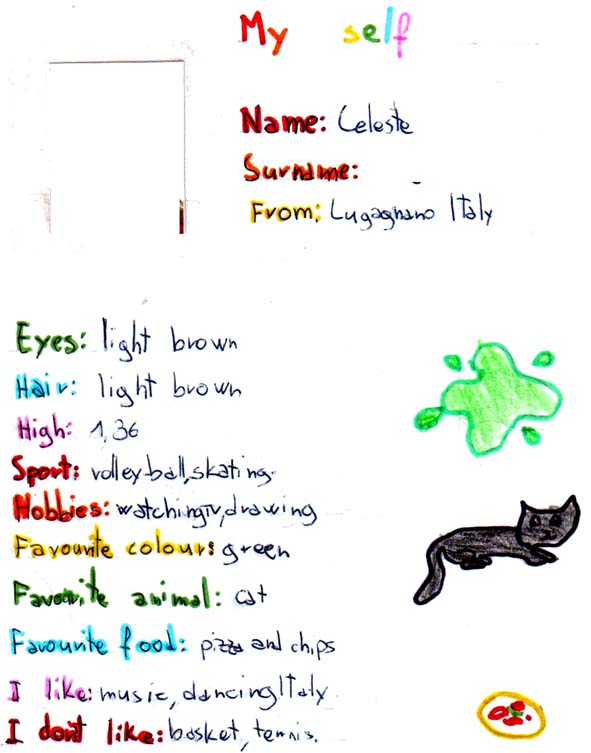 My self
Name: Celeste
Surname:
From: Lugagnano Italy
Eyes: light brown
Hair: light brown
High: 1,36
Sport: volley-ball, skating.
Hobbies: watching TV, drawing
Favourite colour: green
Favourite animal: cat
Favourite food: pizza and chips
I like: music, dancing Italy
I don't like: basket, tennis.